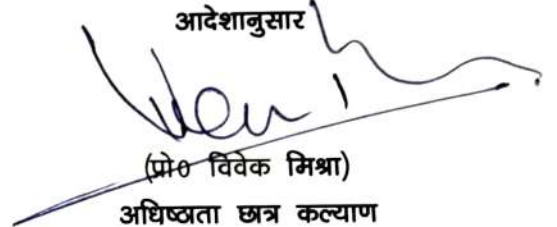 आदेशानुसार
(प्रो० विवेक मिश्रा)
अधिष्ठाता छात्र कल्याण